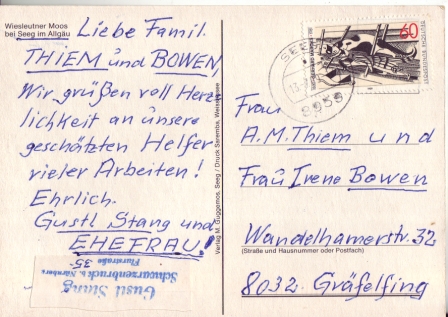 Wiesleutner Moos
bei Seeg im Allgäu
Liebe Famil.
THIEM und BOWEN,
Wir grüßen voll Herz-
lichkeit an unsere
geschätzten Helfer
vieler Arbeiten!
Ehrlich.
Gustl Stang und
EHEFRAU!
Gustl Stang
Schwarzenbruck b. Nürnberg
Flurstraße 35
Verlag M. Guggemos, Seeg / Druck Saremba, Weissensee
SEEG
8959
60
DEUTSCHE BUNDESPOST
Frau
A. M. Thiem und
Frau Irene Bowen
Wandelhamerstr. 32
(Straße und Hausnummer oder Postfach)
8032 Gräfelfing